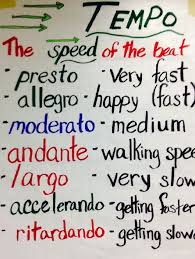 TEMPO
The speed of the beat
- presto - Very fast
- allegro - happy (fast)
- moderato - medium
- andante - walking spee
- largo - very slow
- accelerando - getting faster
- ritardando - getting slow